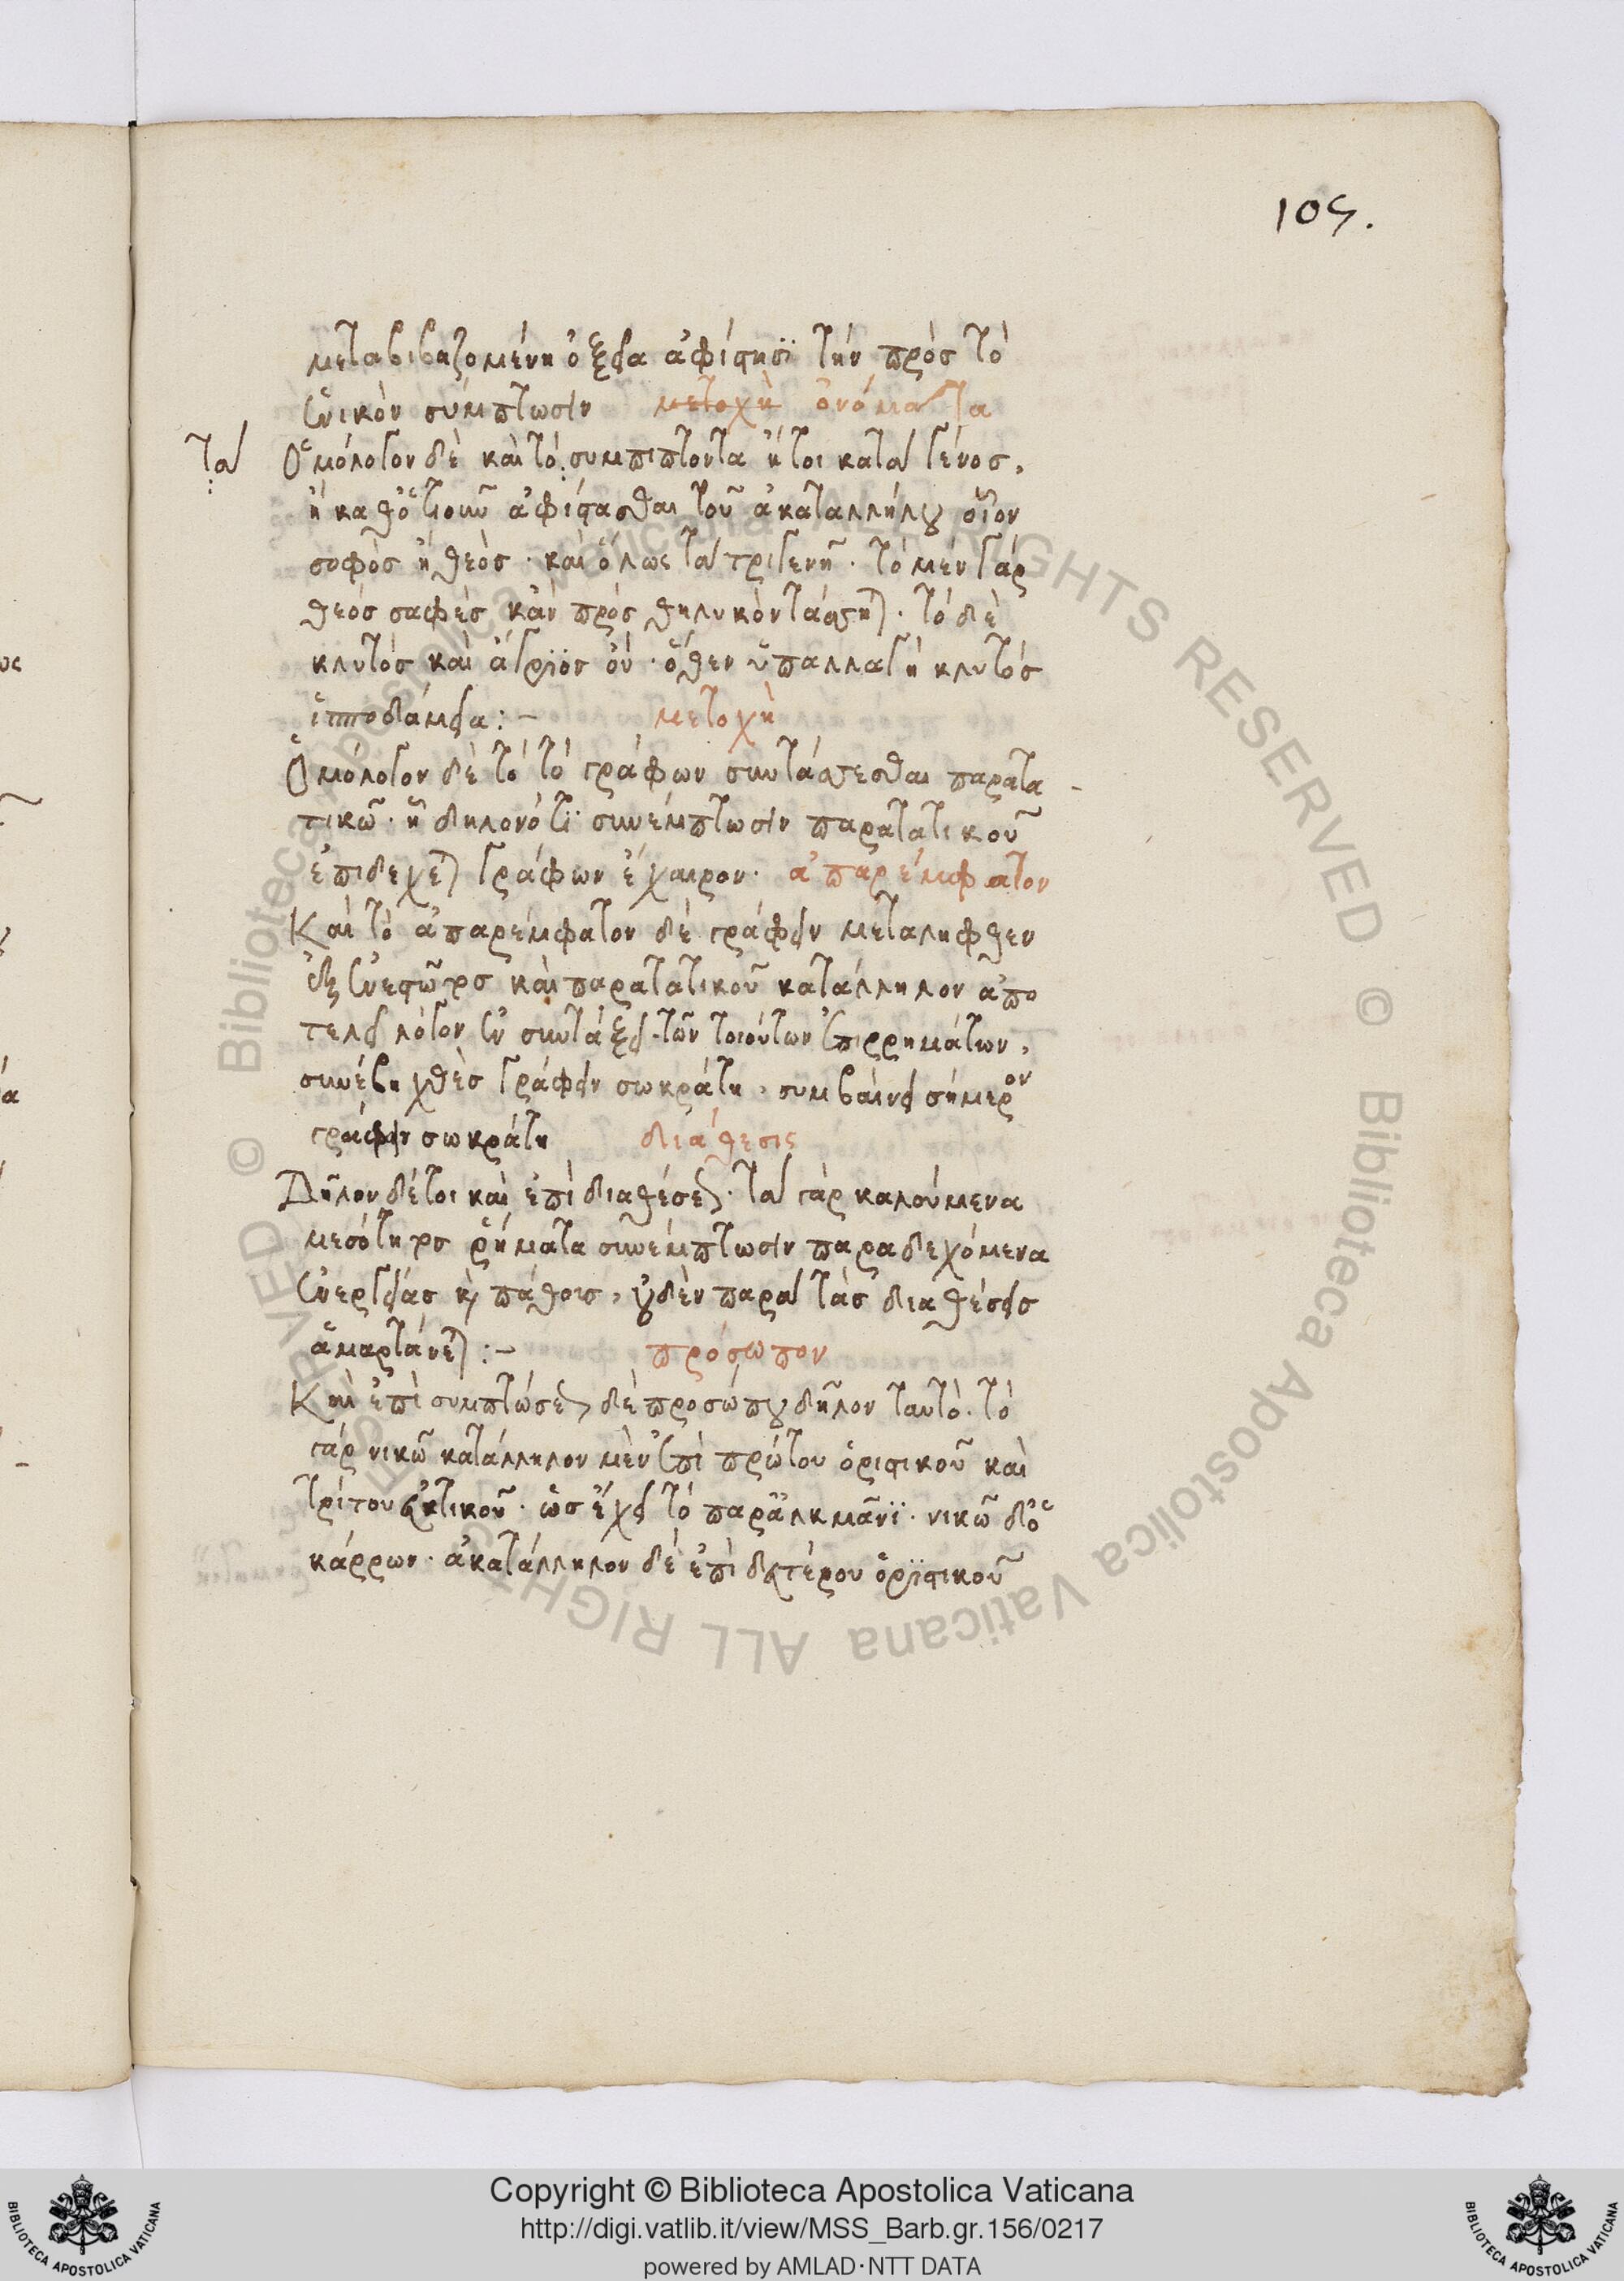 105.
μεταβιβαζομένη ὀξεῖα ἀφίστησϊ τὴν πρὸς τὸ
ἑνικὸν σύμπτωσιν μετοχὴ ὀνόματα
τὰ Ὁμόλογον δὲ καὶ τὸ συμπιπτοντα ἤτοι κατὰ γένος,
ἢ καθ' ὁτιοῦν ἀφίστασθαι τοῦ ἀκαταλλήλου οἷον
σοφὸς ἢ θεὸς · καὶ ὅλως τὰ τριγενῆ · τὸ μὲν γάρ
θεός σαφὲς κἂν πρὸς θηλυκὸν τάττηται · τὸ δὲ
κλυτός καὶ ἄγριος οὐ · ὅθεν ὑπαλλαγὴ κλυτός
ἱπποδάμεια :- μετοχὴ
Ὁμόλογον δὲ τὸ τὸ γράφων συντάττεσθαι παρατα-
τικῶ · ἢ δηλονότϊ συνέμπτωσιν παρατατικοῦ
ἐπιδέχεται γράφων ἔχαιρον · ἀπαρέμφατον
Καὶ τὸ ἀπαρέμφατον δὲ γράφειν μεταληφθεν
ἐξ ἐνεστῶτος καὶ παρατατικοῦ κατάλληλον ἀπο
τελεῖ λόγον ἐν συντάξει τῶν τοιούτων ἐπιρρημάτων,
συνέβη χθὲς γράφειν σωκράτη, συμβαίνει σήμερον
γράφειν σωκράτη διάθεσις
Δῆλον δέ τοι καὶ ἐπὶ διαθέσεως · τὰ γὰρ καλούμενα
μεσότητος ῥήματα συνέμπτωσιν παραδεχόμενα
ἐνεργείας κ πάθους, οὐδὲν παρὰ τὰς διαθέσεις
ἁμαρτάνεται :- πρόσωπον
Καὶ ἐπὶ συμπτώσεως δὲ προσώπου δῆλον ταυτὸ · τὸ
γάρ νικῶ κατάλληλον μὲν ἐπὶ πρώτου ὁριστικοῦ καὶ
τρίτου εὐκτικοῦ · ὡς ἔχει τὸ παρ' ἀλκμᾶνϊ · νικῶ δ' ὁ
κάρρων · ἀκατάλληλον δὲ ἐπὶ δευτέρου ὁρϊστικοῦ
Copyright © Biblioteca Apostolica Vaticana
http://digi.vatlib.it/view/MSS_Barb.gr.156/0217
powered by AMLAD·NTT DATA